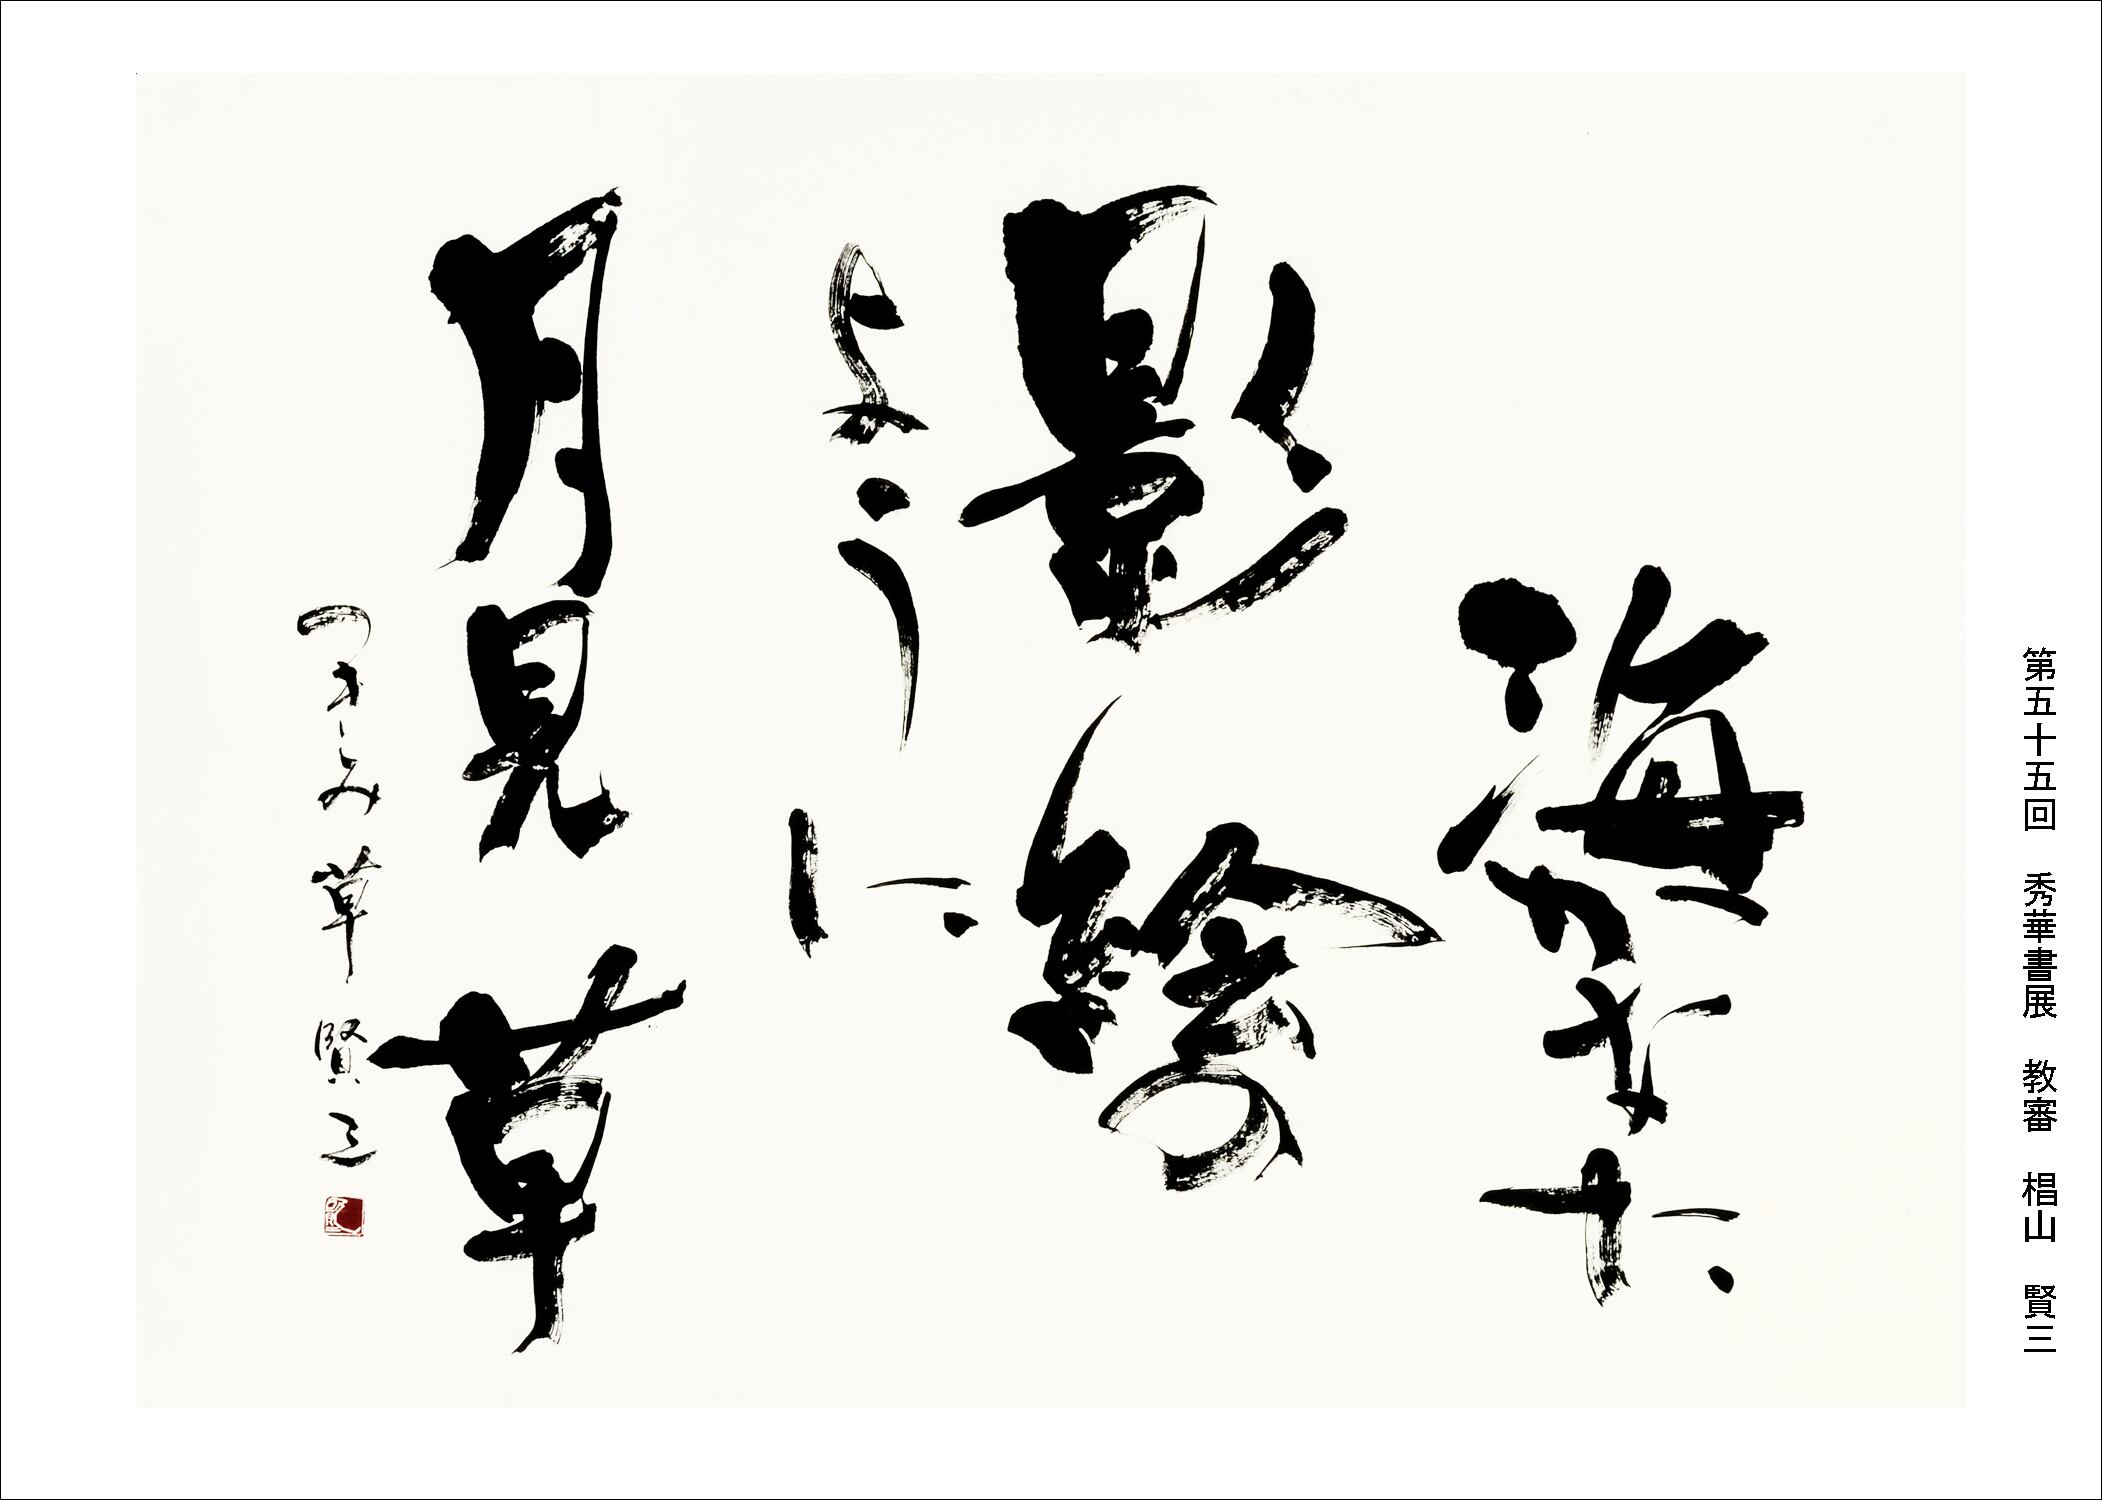 第五十五回　秀華書展　教審　椙山　賢三
海かなた
影絵の
ように
月見草
つきみ草 賢三